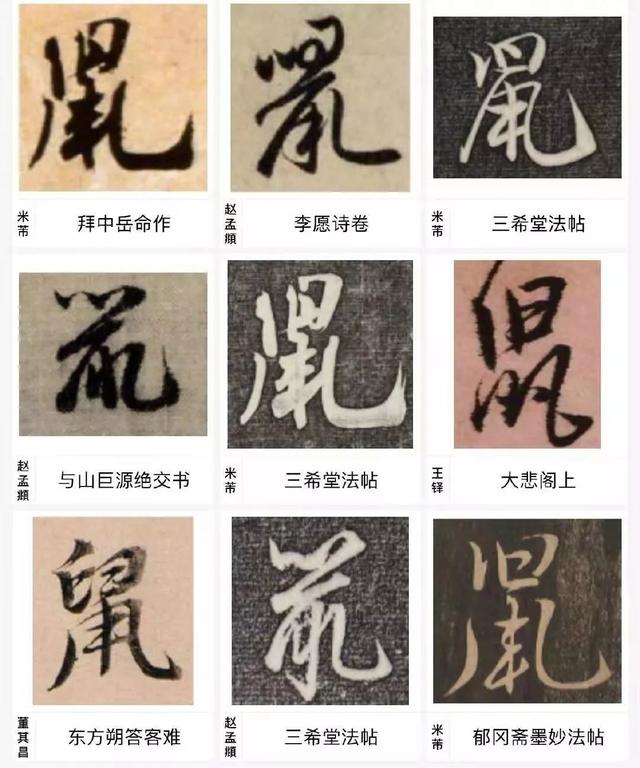 鼠 鼠 鼠
米芾 拜中岳命作
赵孟頫 李愿诗卷
米芾 三希堂法帖
鼠 鼠 鼠
赵孟頫 与山巨源绝交书
米芾 三希堂法帖
王铎 大悲阁上
鼠 鼠 鼠
董其昌 东方朔答客难
赵孟頫 三希堂法帖
米芾 郁冈斋墨妙法帖